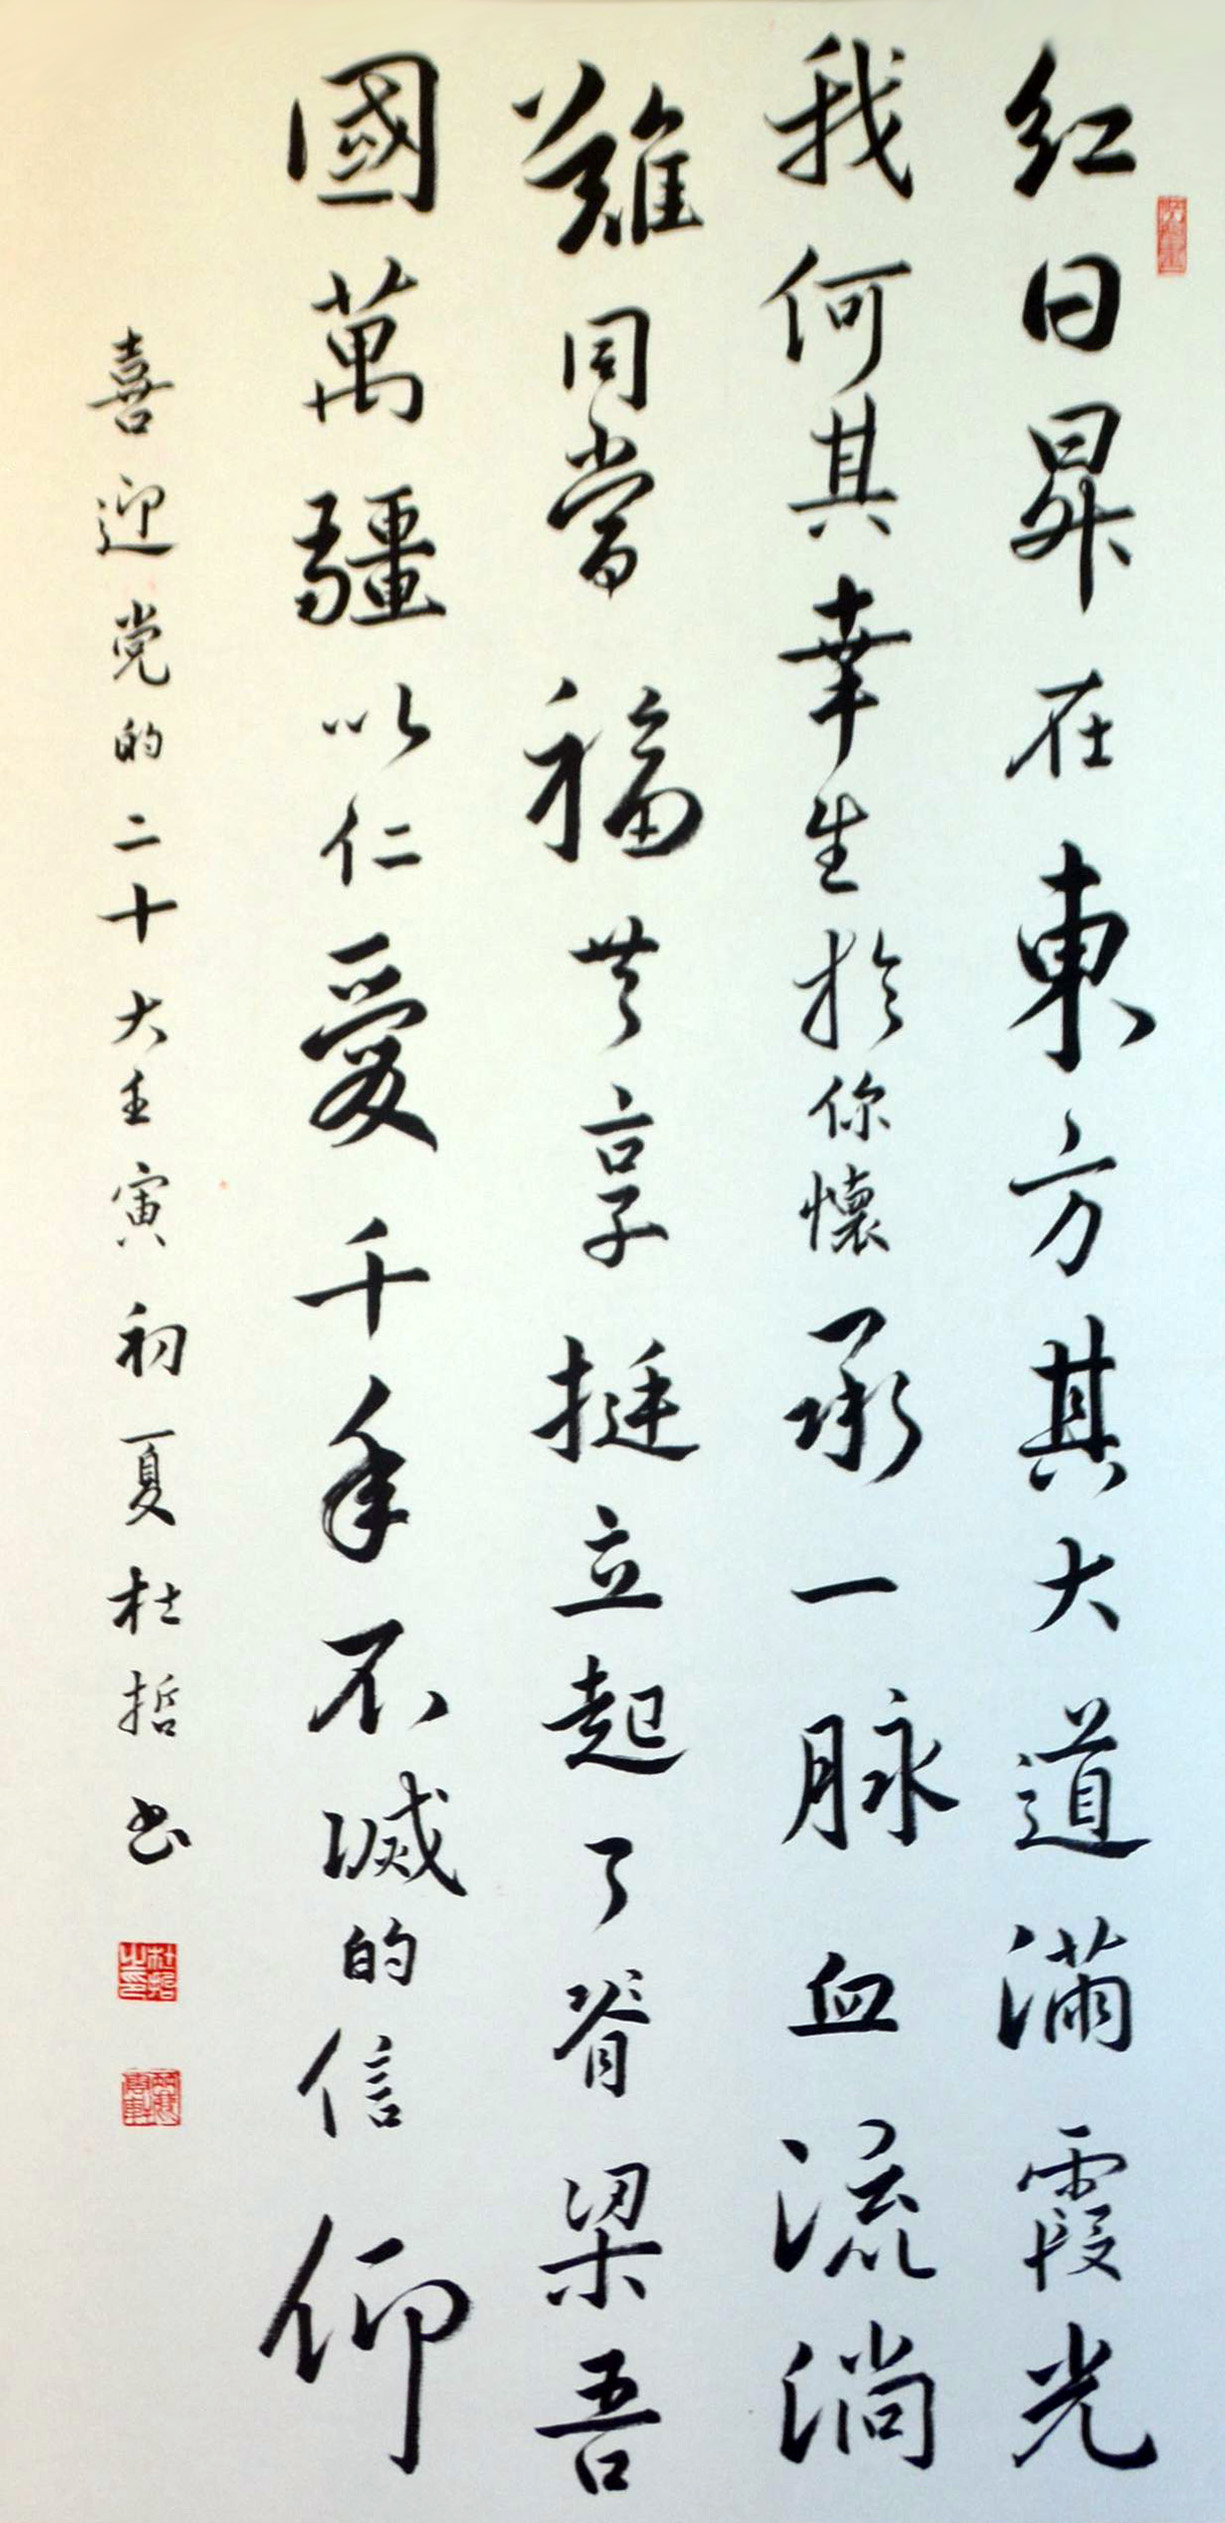 紅日昇在東方其大道滿霞光
我何其幸生於你懷承一脉血流淌
難同當福共享挺立起了脊梁吾
國萬疆以仁愛千年不滅的信仰
喜迎党的二十大壬寅初夏杜哲书
杜哲之印